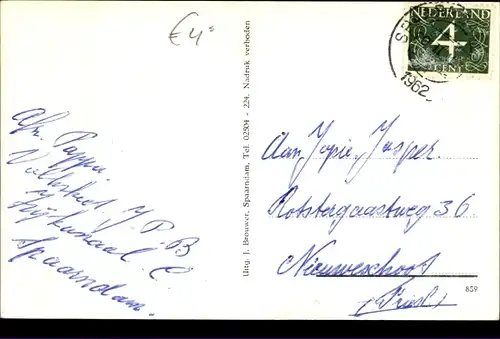 € 4,=
NEDERLAND
4
CENT
1962
Afz. Pappa.
J. P. B
Spaarndam.
Uitg. J. Brouwer, Spaarndam, Tel. 02504 - 224. Nadruk verboden
Aan, Jopie, Jasper.
Rotstergaastweg 36.
Nieuweschoot
(Friesl)
859